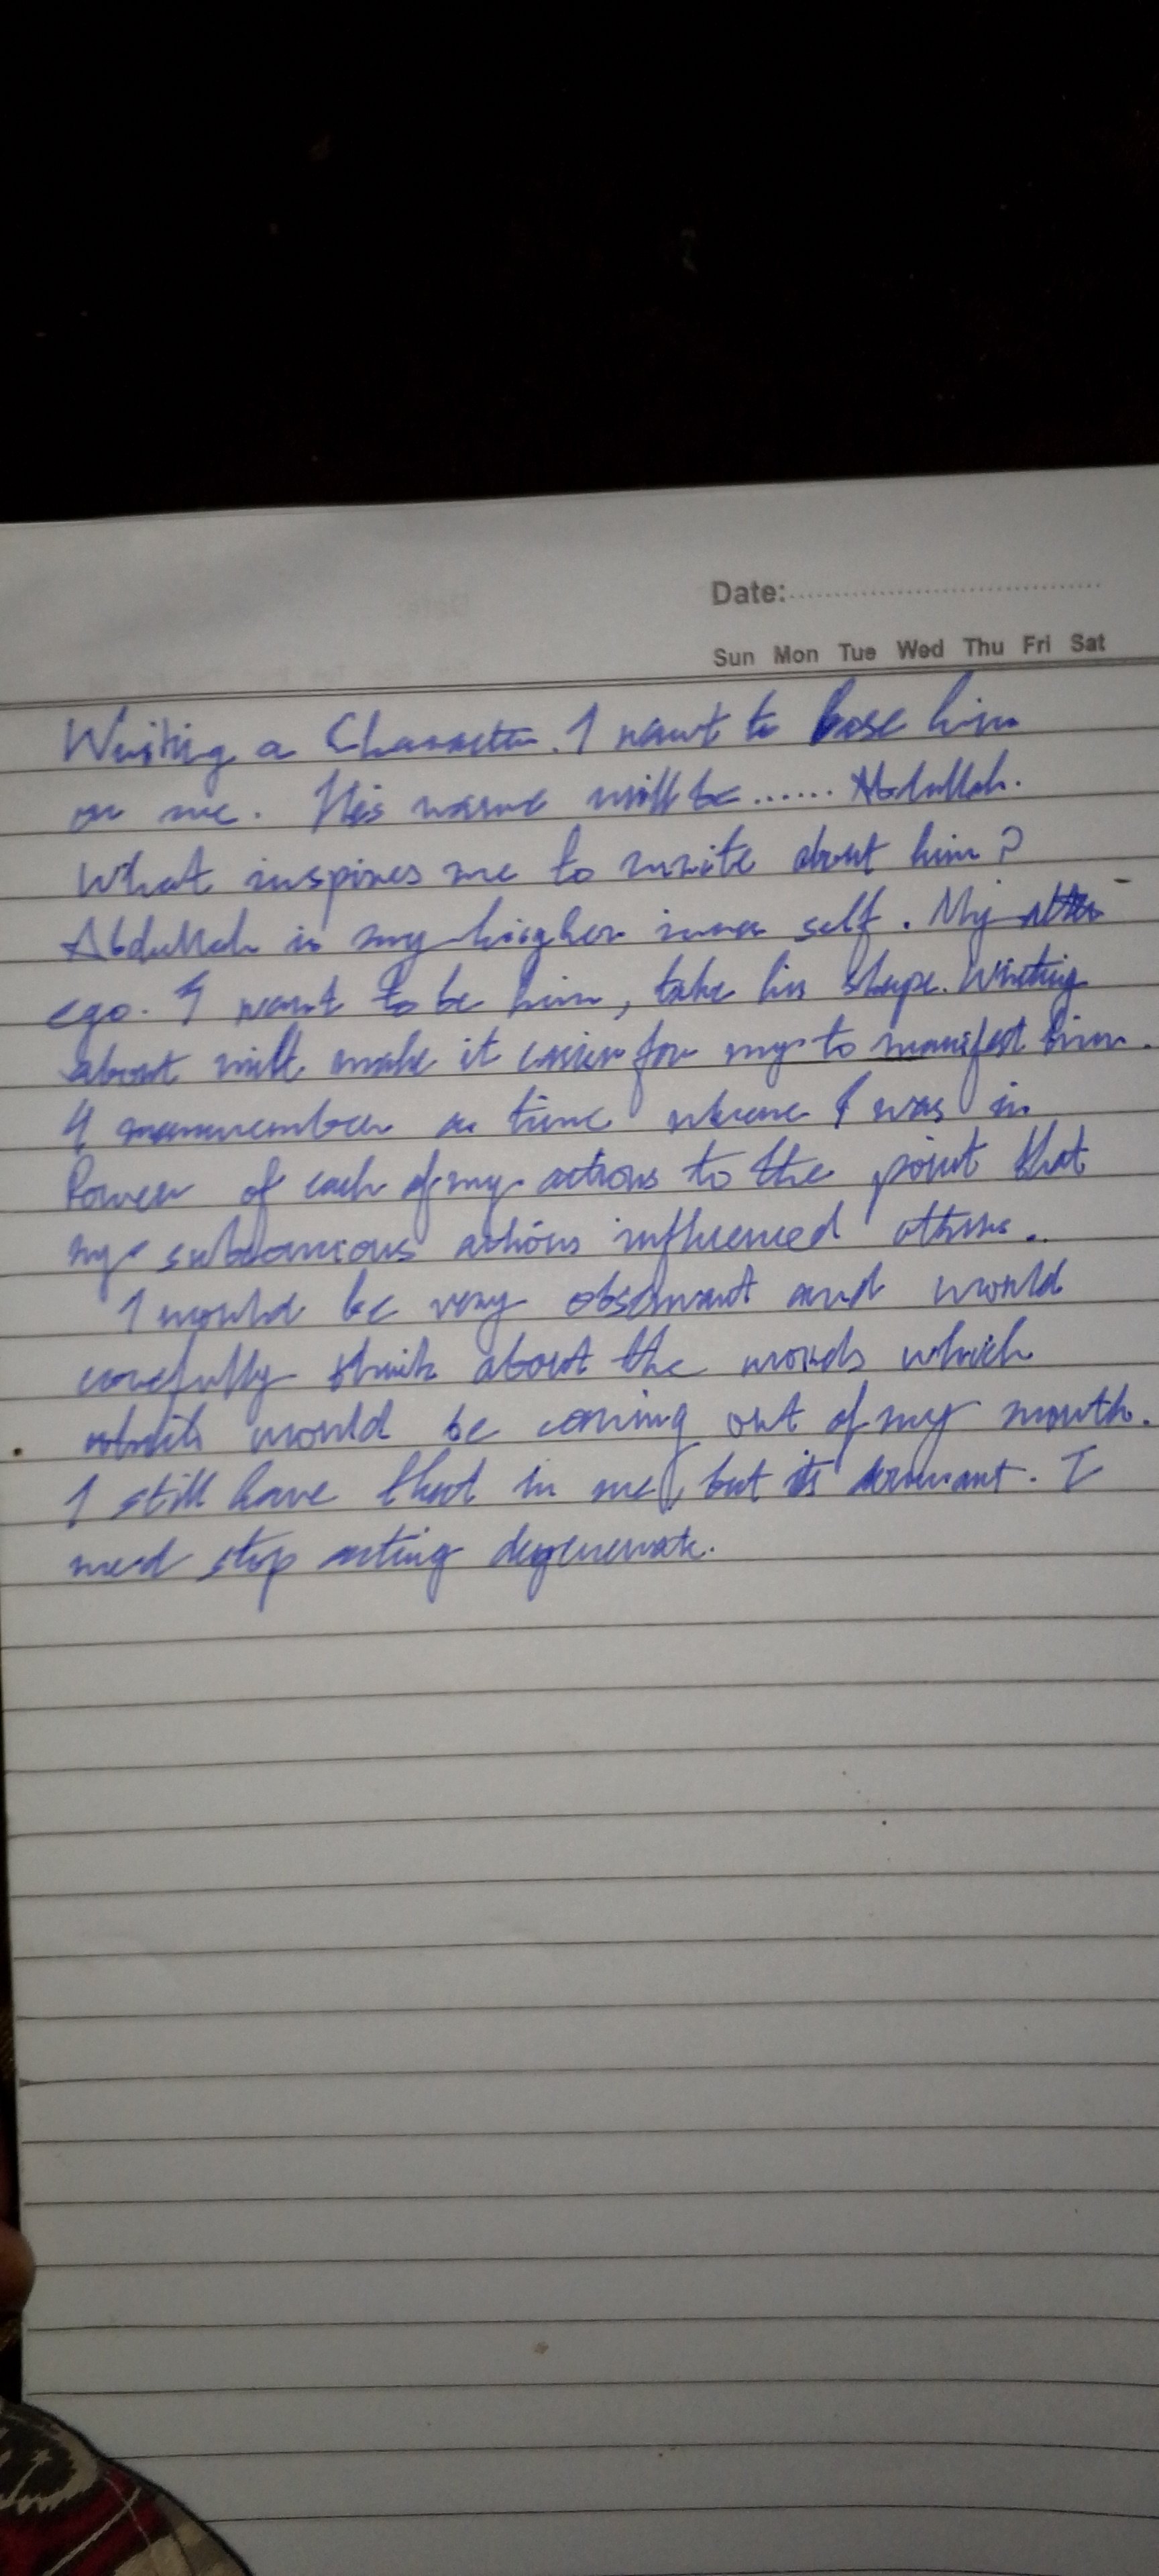 Date:
Sun Mon Tue Wed Thu Fri Sat
Writing a Character. I want to base him
on me. His name will be ...... Abdullah.
What inspires me to write about him?
Abdullah is my higher inner self. My alter
ego. I want to be him, take his shape. Writing
about will make it easier for my to manifest him.
I remember a time where I was in
Power of each of my actions to the point that
my subconcious actions influenced others.
I would be very observant and would
carefully think about the words which
would be coming out of my mouth.
I still have that in me, but its dormant. I
need stop acting degenerate.